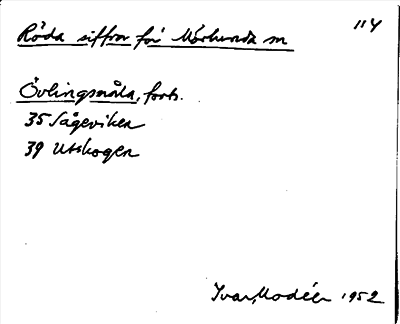 Röda siffror för Mörlunda sn
114
Övlingsmåla, forts.
35 Sågeviken
39 Utskogen
Ivar Modéer 1952